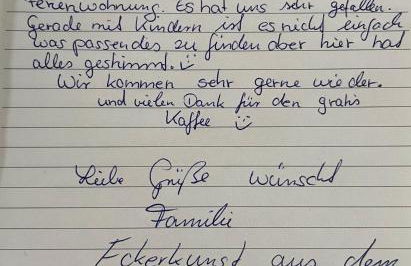 Ferienwohnung. Es hat uns sehr gefallen.
Gerade mit Kindern ist es nicht einfach
was passendes zu finden aber hier hat
alles gestimmt.
Wir kommen sehr gerne wieder.
und vielen Dank für den gratis
Kaffee
Liebe Grüße wünscht
Familie
Eckerkunst aus dem